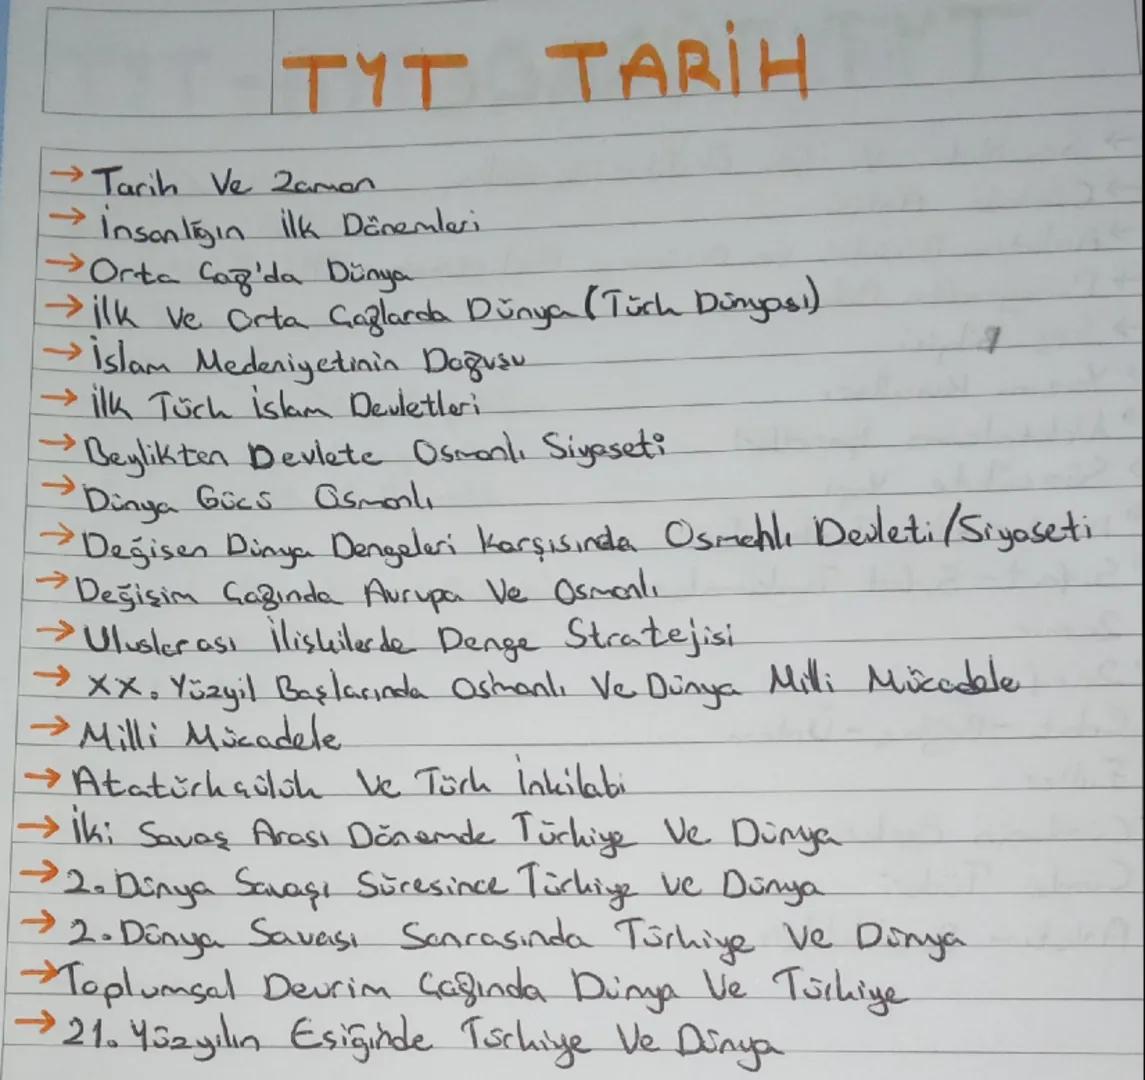 TYT TARİH
→ Tarih Ve Zaman
→ İnsanlığın İlk Dönemleri
→ Orta Çağ'da Dünya
→ İlk Ve Orta Çağlarda Dünya (Türk Dünyası)
→ İslam Medeniyetinin Doğuşu
→ İlk Türk İslam Devletleri
→ Beylikten Devlete Osmanlı Siyaseti
→ Dünya Gücü Osmanlı
→ Değişen Dünya Dengeleri Karşısında Osmanlı Devleti/Siyaseti
→ Değişim Çağında Avrupa Ve Osmanlı
→ Uluslarası İlişkilerde Denge Stratejisi
→ XX. Yüzyıl Başlarında Osmanlı Ve Dünya Milli Mücadele
→ Milli Mücadele
→ Atatürkçülük Ve Türk İnkilabi
→ İki Savaş Arası Dönemde Türkiye Ve Dünya
→ 2. Dünya Savaşı Süresince Türkiye ve Dünya
→ 2. Dünya Savaşı Sonrasında Türkiye Ve Dünya
→ Toplumsal Devrim Çağında Dünya Ve Türkiye
→ 21. Yüzyılın Eşiğinde Türkiye Ve Dünya